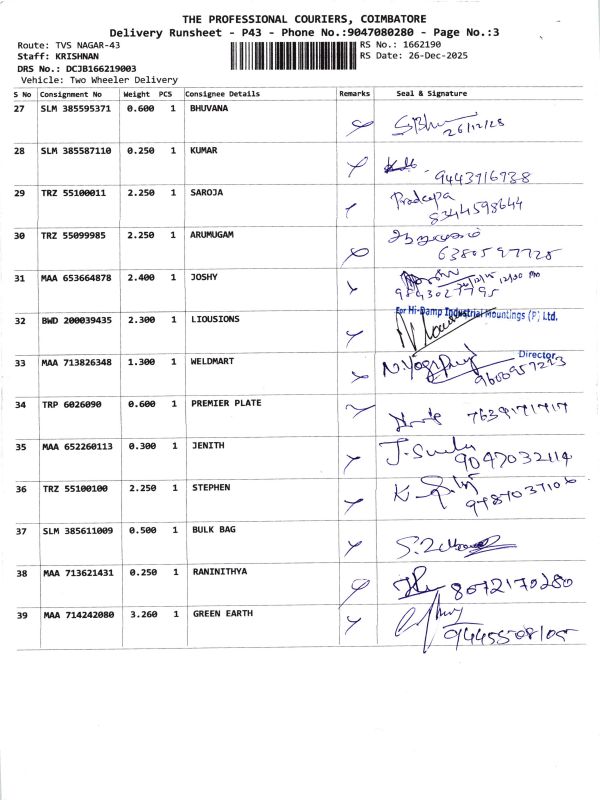 THE PROFESSIONAL COURIERS, COIMBATORE
Delivery Runsheet - P43 - Phone No.:9047080280 - Page No.:3
Route: TVS NAGAR-43 RS No.: 1662190
Staff: KRISHNAN RS Date: 26-Dec-2025
DRS No.: DCJB166219003
Vehicle: Two Wheeler Delivery
S No Consignment No Weight PCS Consignee Details Remarks Seal & Signature
27 SLM 385595371 0.600 1 BHUVANA
26/12/25
28 SLM 385587110 0.250 1 KUMAR
9443716738
29 TRZ 55100011 2.250 1 SAROJA Pradeepa
8344598644
30 TRZ 55099985 2.250 1 ARUMUGAM
6380597725
31 MAA 653664878 2.400 1 JOSHY
9843027795
32 BWD 200039435 2.300 1 LIOUSIONS For Hi-Damp Industrial Mountings (P) Ltd.
Director
33 MAA 713826348 1.300 1 WELDMART
9600957223
34 TRP 6026090 0.600 1 PREMIER PLATE
7639171717
35 MAA 652260113 0.300 1 JENITH
9047032114
36 TRZ 55100100 2.250 1 STEPHEN
9487037106
37 SLM 385611009 0.500 1 BULK BAG
38 MAA 713621431 0.250 1 RANINITHYA 8072170280
39 MAA 714242080 3.260 1 GREEN EARTH